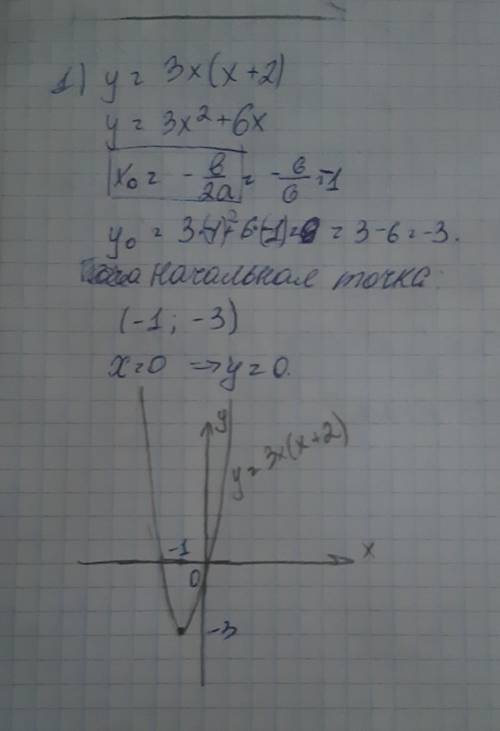 1) y = 3x(x+2)
y = 3x² + 6x
x₀ = - в/2a = - 6/6 = -1
y₀ = 3·(-1)² + 6·(-1) = = 3-6 = -3.
начальная точка:
(-1; -3)
x=0 ⇒ y=0.
y
y = 3x(x+2)
-1
x
0
-3